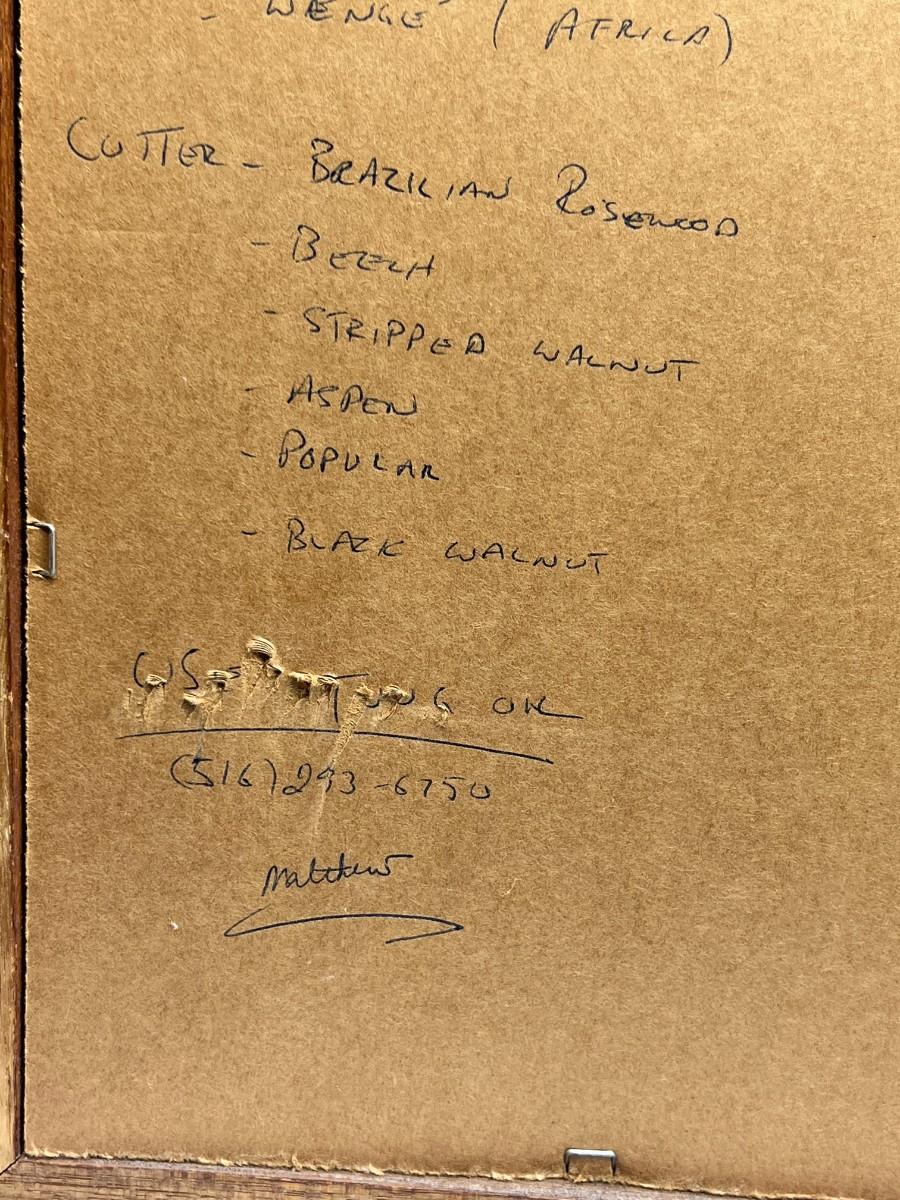 - WENGE (AFRICA)
CUTTER - BRAZILIAN ROSEWOOD
- BEECH
- STRIPPED WALNUT
- ASPEN
- POPULAR
- BLACK WALNUT
TUNG OIL
(516) 293-6750
Matthew